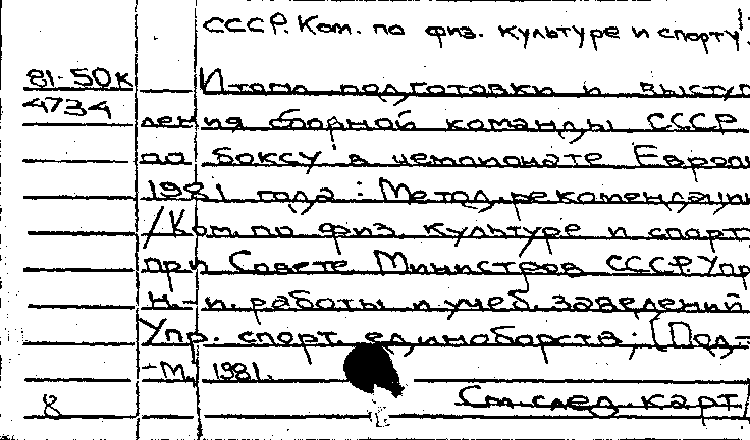 СССР. Ком. по физ. культуре и спорту
81-50к
4734
Итоги подготовки и выступ
ления сборной команды СССР
по боксу в чемпионате Европы
1981 года : Метод. рекомендации
/Ком. по физ. культуре и спорту
при Совете Министров СССР. Упр.
н.-и. работы и учеб. заведений
Упр. спорт. единоборств ; [Под-
-М., 1981.
8
См. след. карт.